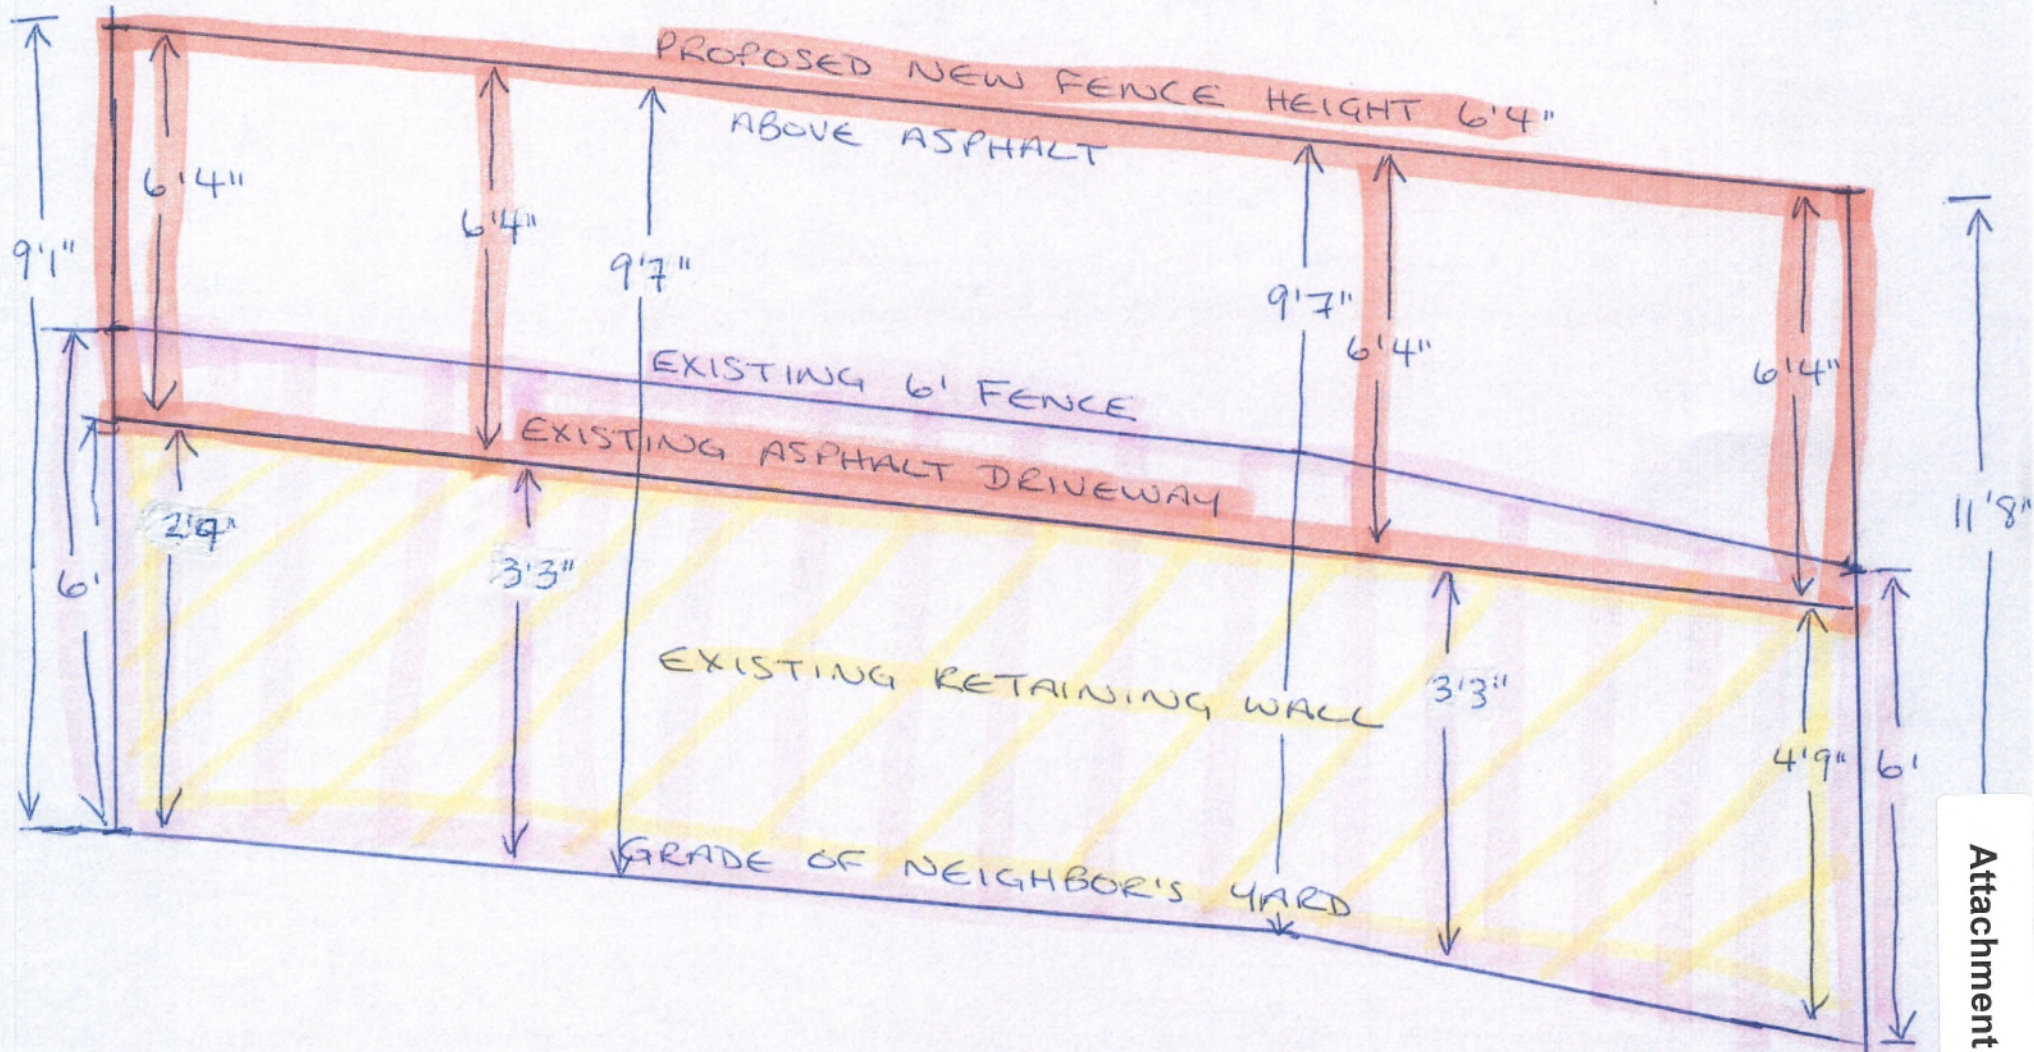 PROPOSED NEW FENCE HEIGHT 6'4"
ABOVE ASPHALT
6'4"
6'4"
9'1"
9'7"
9'7"
6'4"
6'4"
EXISTING 6' FENCE
EXISTING ASPHALT DRIVEWAY
11'8"
2'9"
3'3"
6'
EXISTING RETAINING WALL
3'3"
4'9"
6'
GRADE OF NEIGHBOR'S YARD
Atttachment